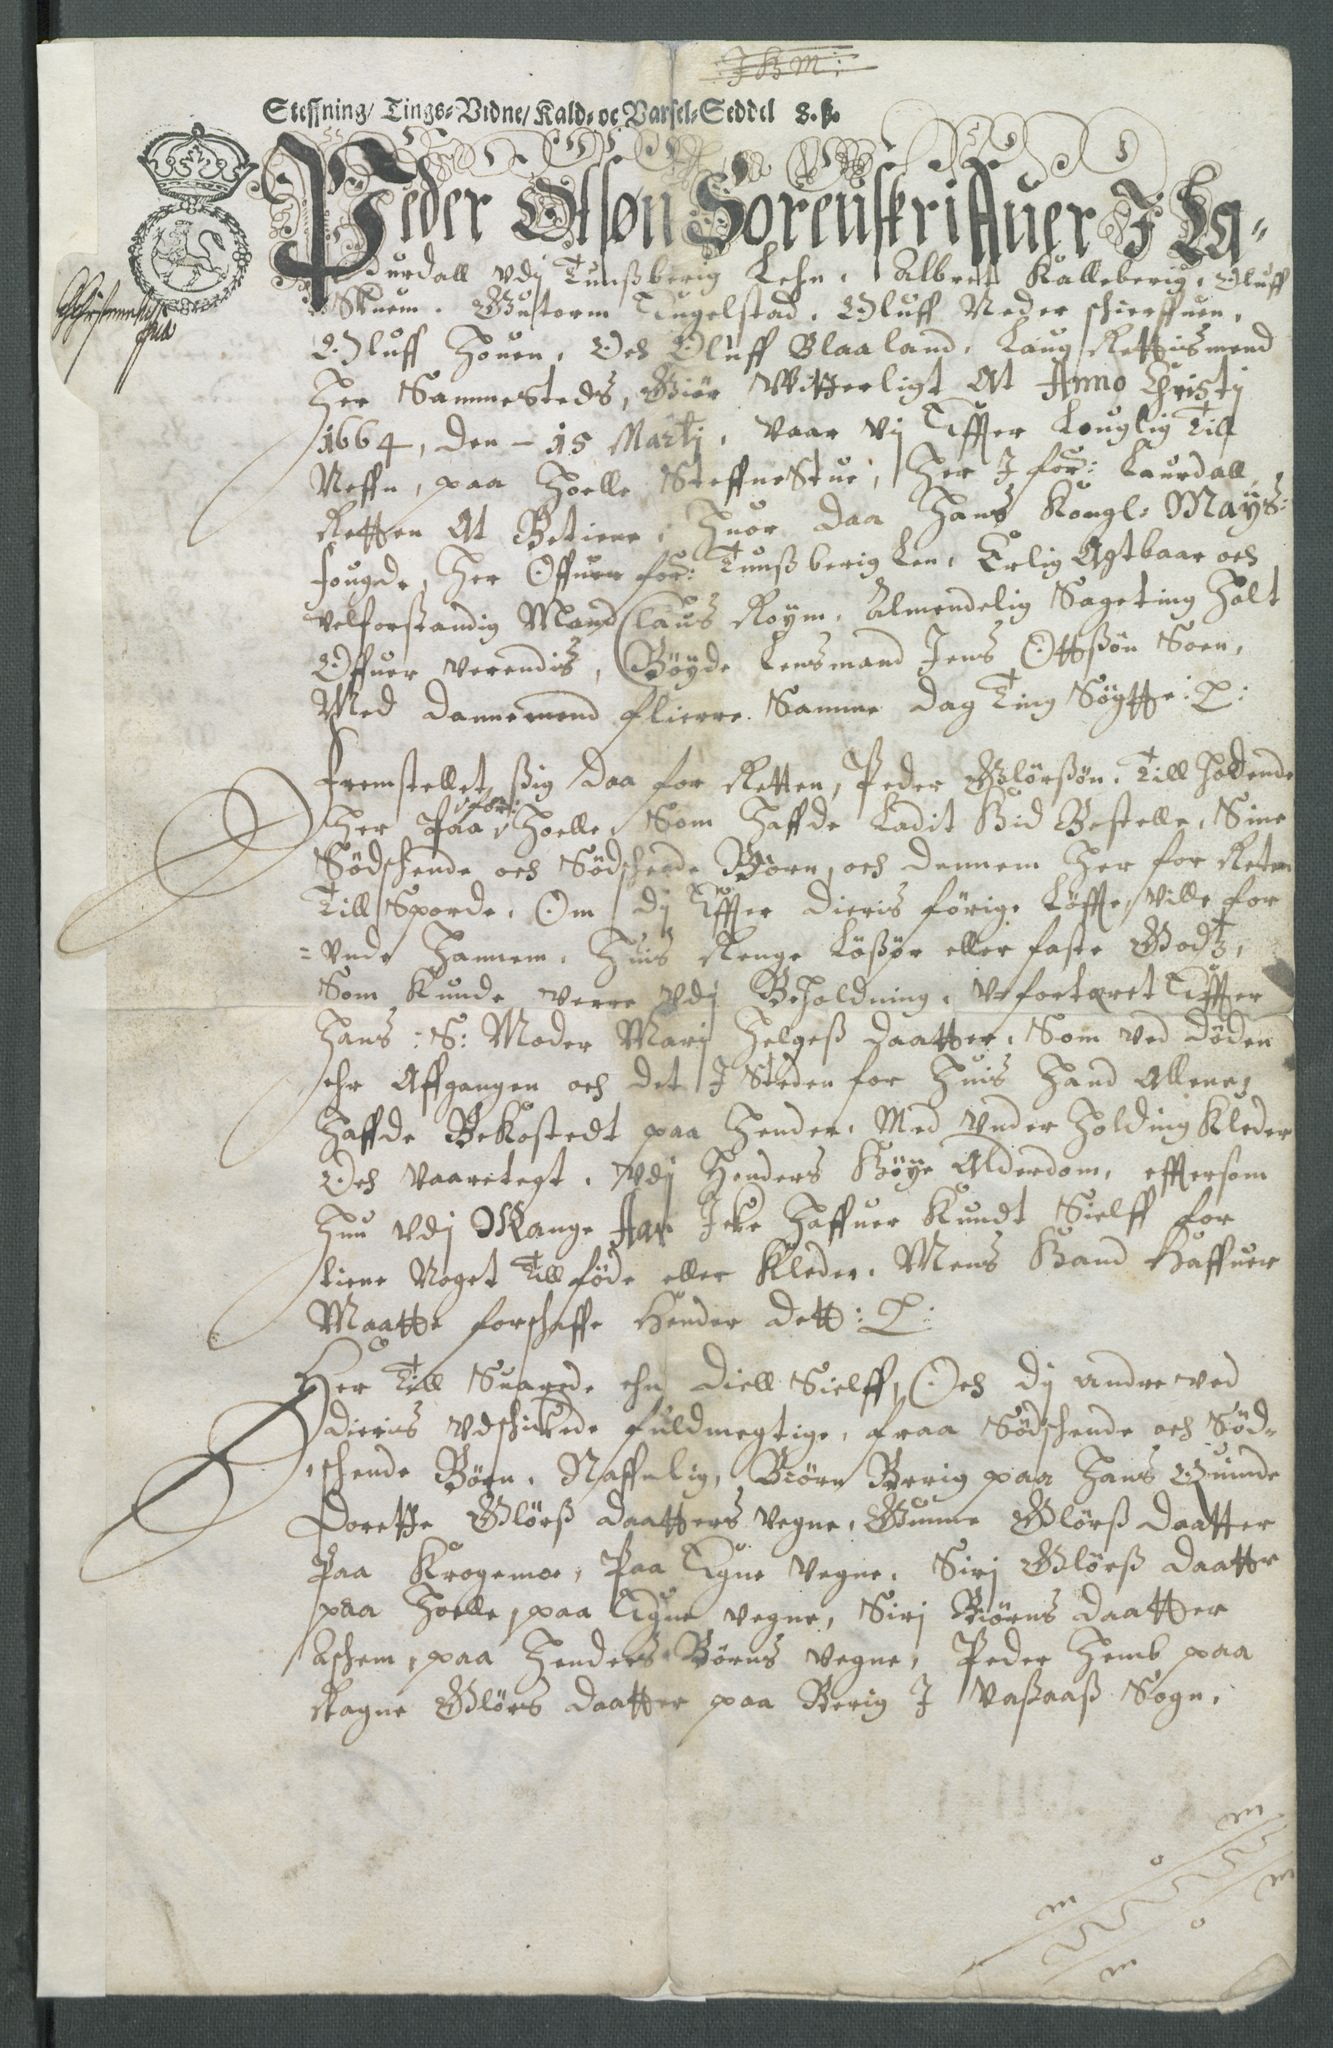 J H M:
Steffning/ Tings-Vidne/ Kald- oc Varsel-Seddel 8. ß.
Peder Olsøn Sorenskriffuer J La-
durdall vdj Tunßberig Lehn, Albret Kalleberig, Oluff
Skuem. Gutorm Tugelstad, Oluff Neder schierffuen,
Oluff Houen, Och Oluff Blaaland, Laug Rettismend
Her Sammesteds, Giör Witterligt At Anno Christj
1664, den - 15 Martj, Vaar Vj Effter Louglig Till
Neffn, paa Hoelle Steffnestue, Her J for: Laurdall,
Retten At Betiene, Huor daa Hans Kongl: Mayß:
fougde, Her Offuer for: Tunßberig Len, Erlig Agtbaar och
velforstandig Mand Claus Röym, Almendelig Sageting Holt
Offuer verendis, Böyde Lensmand Jens Ottßön Soen,
Med dannemend flierre Samme dag Ting Sögtte: &:
fremstellet ßig daa for Retten, Peder Glörßön, Till Holdende
Her Paa for: Hoelle, Som Haffde Ladit Bid Bestelle, Sine
Södschende och Södschende Börn, och dennem Her for Reten
Till Sporde, Om dj Effter dieris förige Löffte, ville for
= vnde Hannem, Huis Renge Lößör eller faste Godtz,
Som Kunde verre vdj Beholdning, vfortæret Effter
Hans: S: Moder Marj Helgeß daatter, Som ved döden
ehr Affgangen och det J Steden for Huis Hand Allene,
Haffde Bekostedt paa Hender, Med Vnder Holding Kleder
Och Vaaretegt, Vdj Henders Höye Alderdom, effterson
Hun vdj Mange Aar Jcke Haffuer Kundt Sielff for
tiene Noget Till föde eller Kleder, Mens Hand Haffuer
Maatte forschaffe Hender dett: &:
Her Till Suarede ehn diell Sielff, Och dj andre ved
dieris vdschickede fuldmegtige, fraa Södschende och Söd-
schende Börn, Naffnlig, Biörn Berig paa Hans Quinde
Dorethe Glörß daatters vegne, Gunne Glörß daatter
Paa Krogemoe, Paa Egne vegne, Sirj Glörß daatter
paa Hoelle, paa Egne vegne, Sirj Biörns daatter
Aschem, paa Henders Börns vegne, Peder Hemb paa
Ragne Glörs daatter paa Berig J Vaßaaß Sogn,